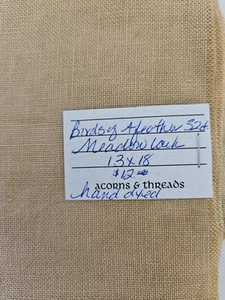 Birds of A feather 32ct
Meadow lark
13 x 18
$12.00
ACORNS & THREADS
hand dyed